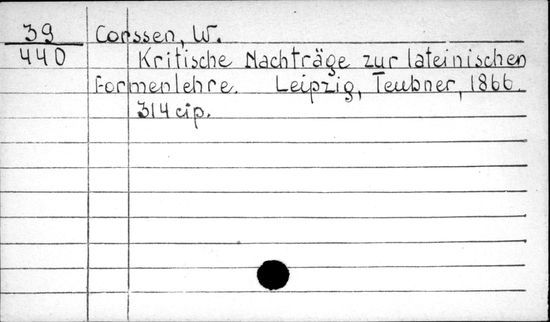 39 Corssen, W.
440 Kritische Nachträge zur lateinischen
Formenlehre. Leipzig, Teubner, 1866.
314 стр.